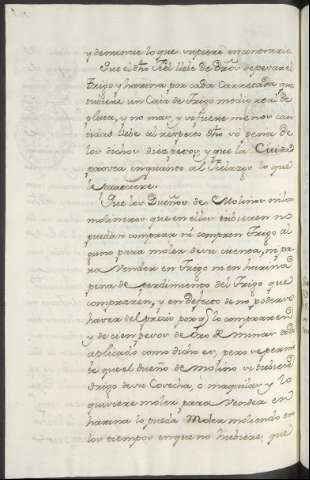 y denuncie lo que supiere en contrario.
Que el dho fiel lleve de dros de pesar el
trigo y harina por cada Carretada que
tubiere un Caiz de trigo medio real de
plata, y no mas, y si fuere menos can-
tidad lleve al respecto dho so pena de
los dichos diez pesos, y que la Ciudad
provea en quanto al
lo que
le pareciere.
Que los Dueños de Molinos ni los
molineros que en ellos estubieren no
puedan comprar ni compren trigo al-
guno para moler de su cuenta, ni pa-
ra vender en trigo ni en harina
pena de perdimiento del trigo que
compraren, y en defecto de no poderse
haver del precio por q lo compraren
y de cien pesos de oro de minas
aplicado como dicho es, pero se permi-
te que el dueño de molino si tubiere
trigo de su Cosecha, o maquilas y lo
quisiere moler para vender en
harina lo pueda moler moliendo en
los tiempos en que no hubiere, que